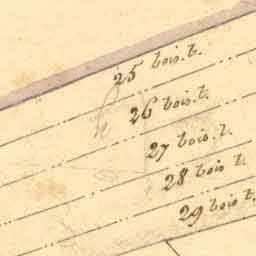 25 bois.t.
26 bois.t.
27 bois.t.
28 bois t.
29 bois t.